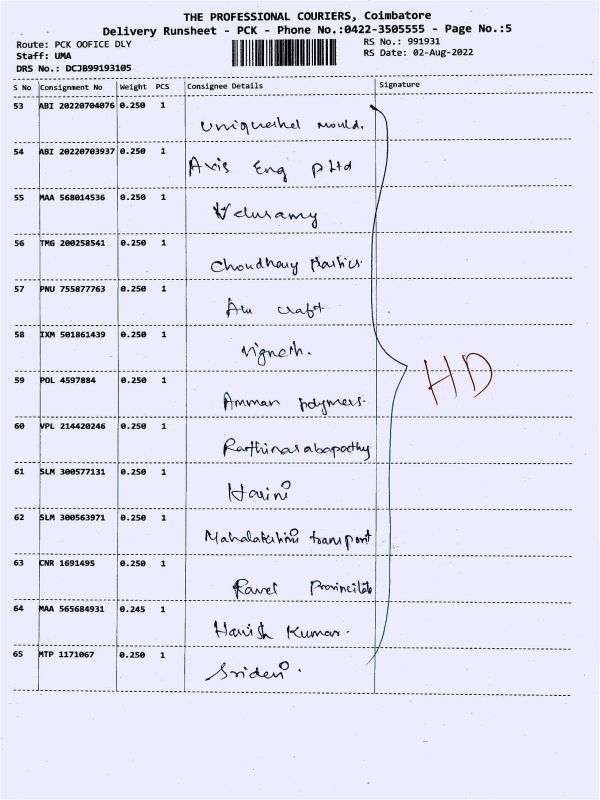 THE PROFESSIONAL COURIERS, Coimbatore
Delivery Runsheet - PCK - Phone No.:0422-3505555 - Page No.:5
Route: PCK OOFICE DLY RS No.: 991931
Staff: UMA RS Date: 02-Aug-2022
DRS No.: DCJB99193105
S No Consignment No Weight PCS Consignee Details Signature
53 ABI 20220704076 0.250 1
mould.
54 ABI 20220703937 0.250 1
Axis Eng pltd
55 MAA 568014536 0.250 1
Velusamy
56 TMG 200258541 0.250 1
Choudhary Plastics.
57 PNU 755877763 0.250 1
craft
58 IXM 501861439 0.250 1
Vignesh.
HD
59 POL 4597884 0.250 1
Amman polymers.
60 VPL 214420246 0.250 1
Rathinasabapathy
61 SLM 300577131 0.250 1
Harini
62 SLM 300563971 0.250 1
Mahalakshmi transport
63 CNR 1691495 0.250 1
64 MAA 565684931 0.245 1
Harish Kumar.
65 MTP 1171067 0.250 1
Sridevi.